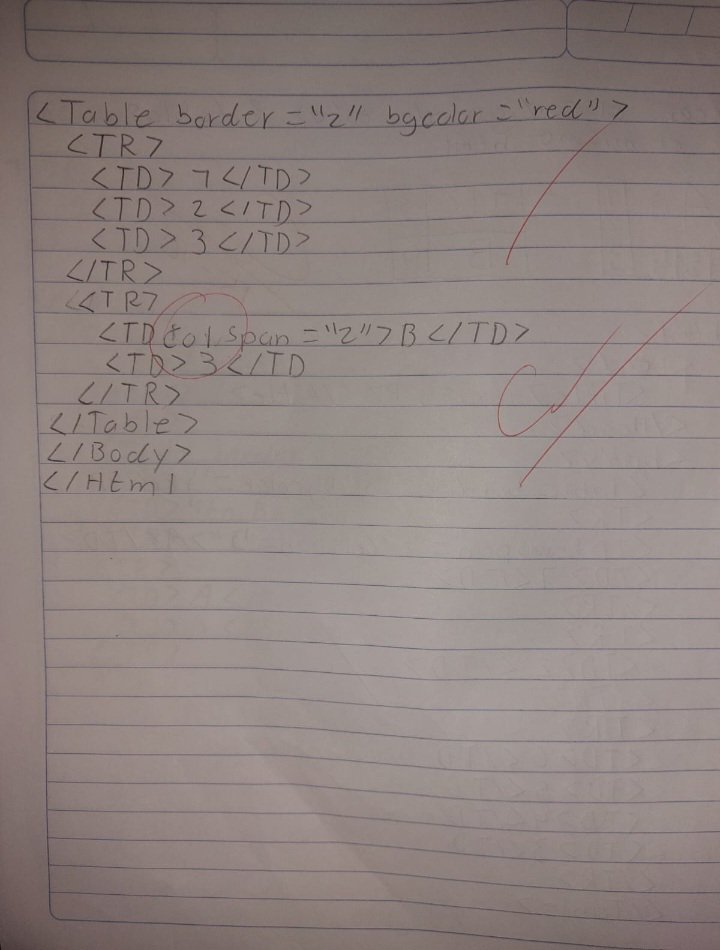 <Table border="2" bgcolor="red">
<TR>
<TD> 1 </TD>
<TD> 2 </TD>
<TD> 3 </TD>
</TR>
<TR>
<TD col span="2"> B </TD>
<TD> 3 </TD
</TR>
</Table>
</Body>
</Html